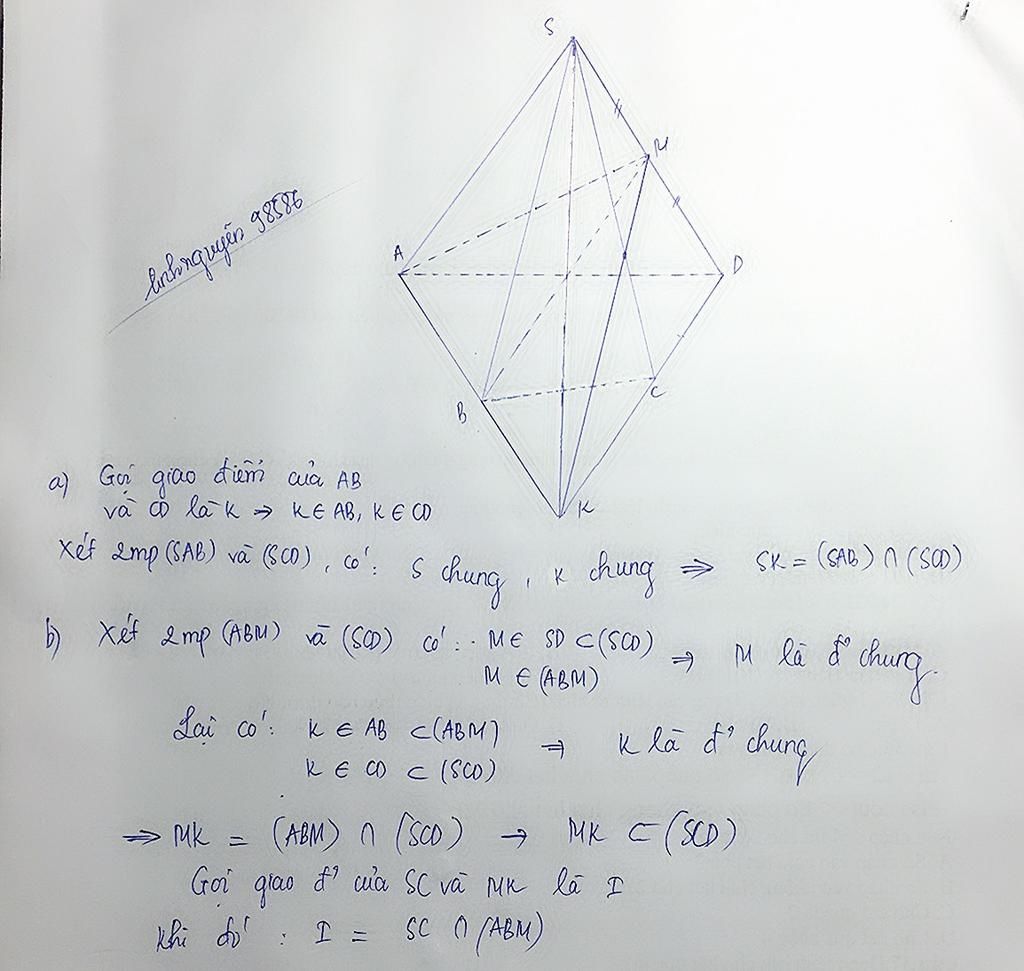 S
M
A
D
B
C
K
linhnguyễn 98586
a) Gọi giao điểm của AB
và CD là K ⇒ K ∈ AB, K ∈ CD
Xét 2mp (SAB) và (SCD), có: S chung, K chung ⇒ SK = (SAB) ∩ (SCD)
b) Xét 2mp (ABM) và (SCD) có: M ∈ SD ⊂ (SCD)
M ∈ (ABM) ⇒ M là đ' chung.
Lại có: K ∈ AB ⊂ (ABM)
K ∈ CD ⊂ (SCD) ⇒ K là đ' chung
⇒ MK = (ABM) ∩ (SCD) → MK ⊂ (SCD)
Gọi giao đ' của SC và MK là I
Khi đó: I = SC ∩ (ABM)